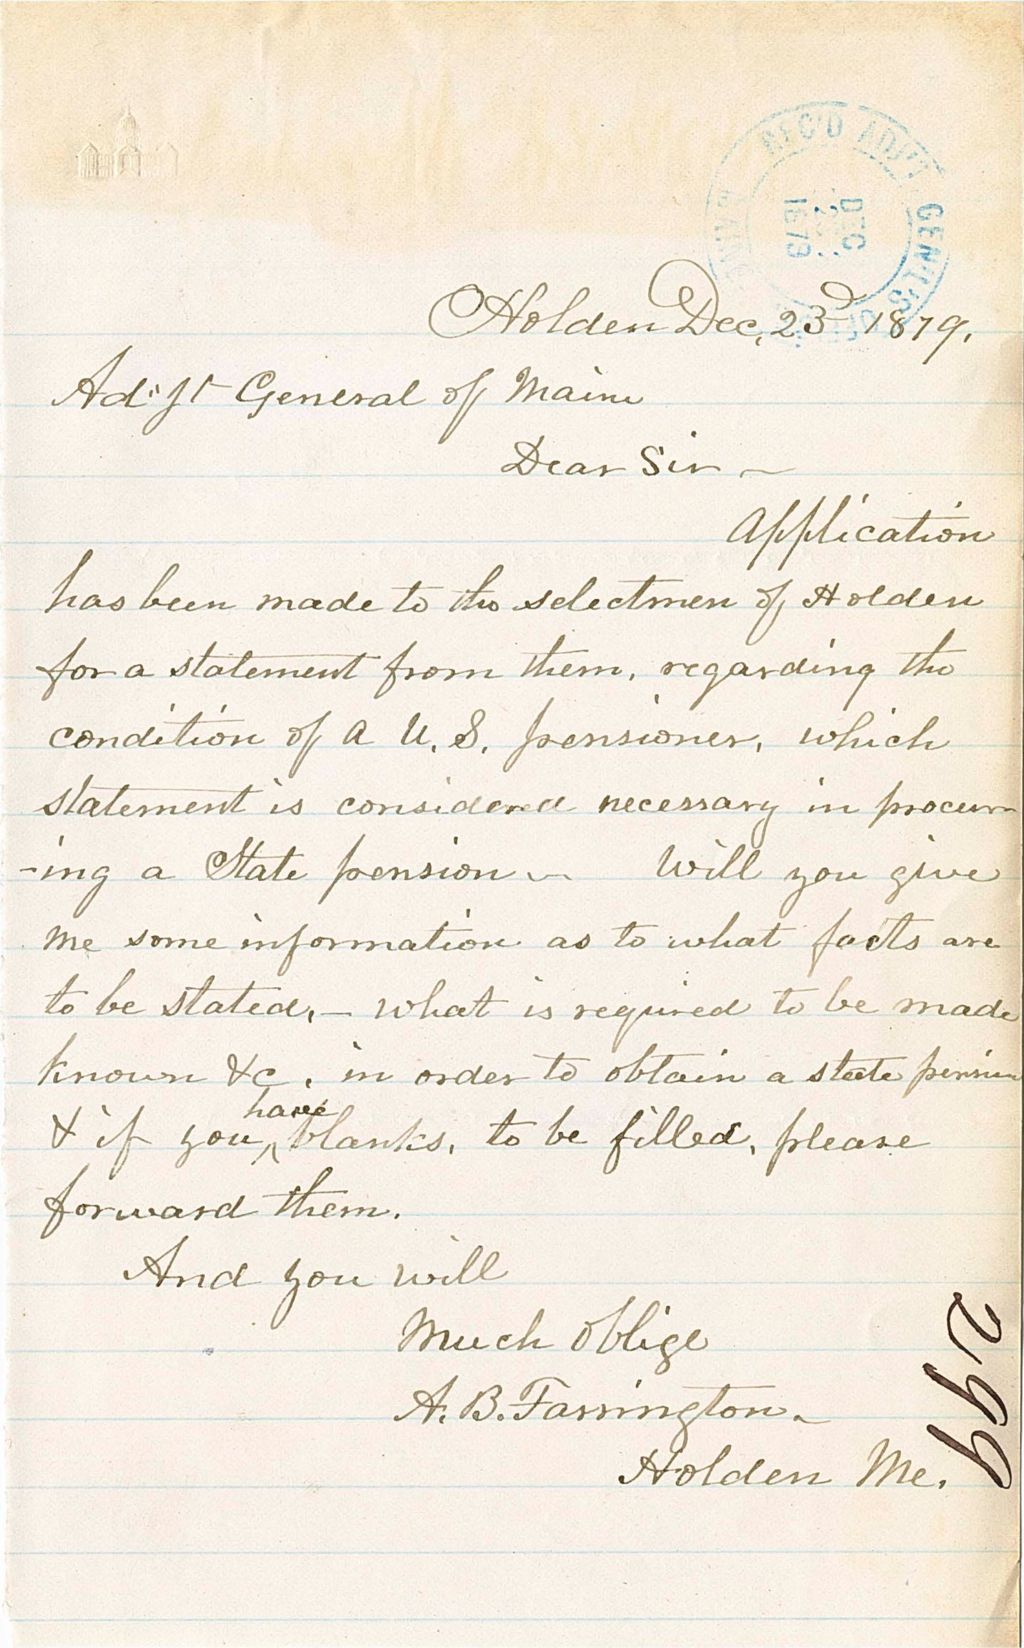 REC'D ADJ'T GEN'L'S OFFICE
DEC
1879
Holden Dec, 23d 1879.
Ad'jt General of Maine
Dear Sir —
Application
has been made to the selectmen of Holden
for a statement from them, regarding the
condition of a U. S. pensioner, which
statement is considered necessary in procur-
-ing a State pension — Will you give
me some information as to what facts are
to be stated, — what is required to be made
known &c, in order to obtain a state pension
& if you ^have blanks, to be filled, please
forward them.
And you will
Much Oblige
A. B. Farrington —
Holden Me.
299